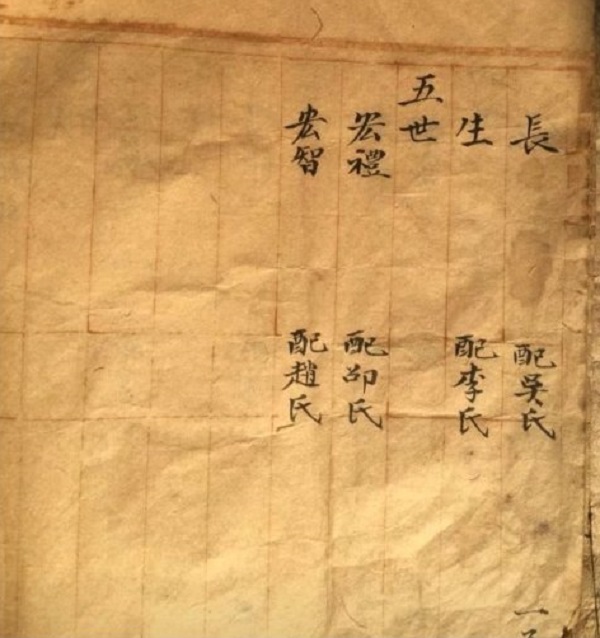 長 配吳氏 一
生 配李氏
五世
宏禮 配邵氏
宏智 配趙氏